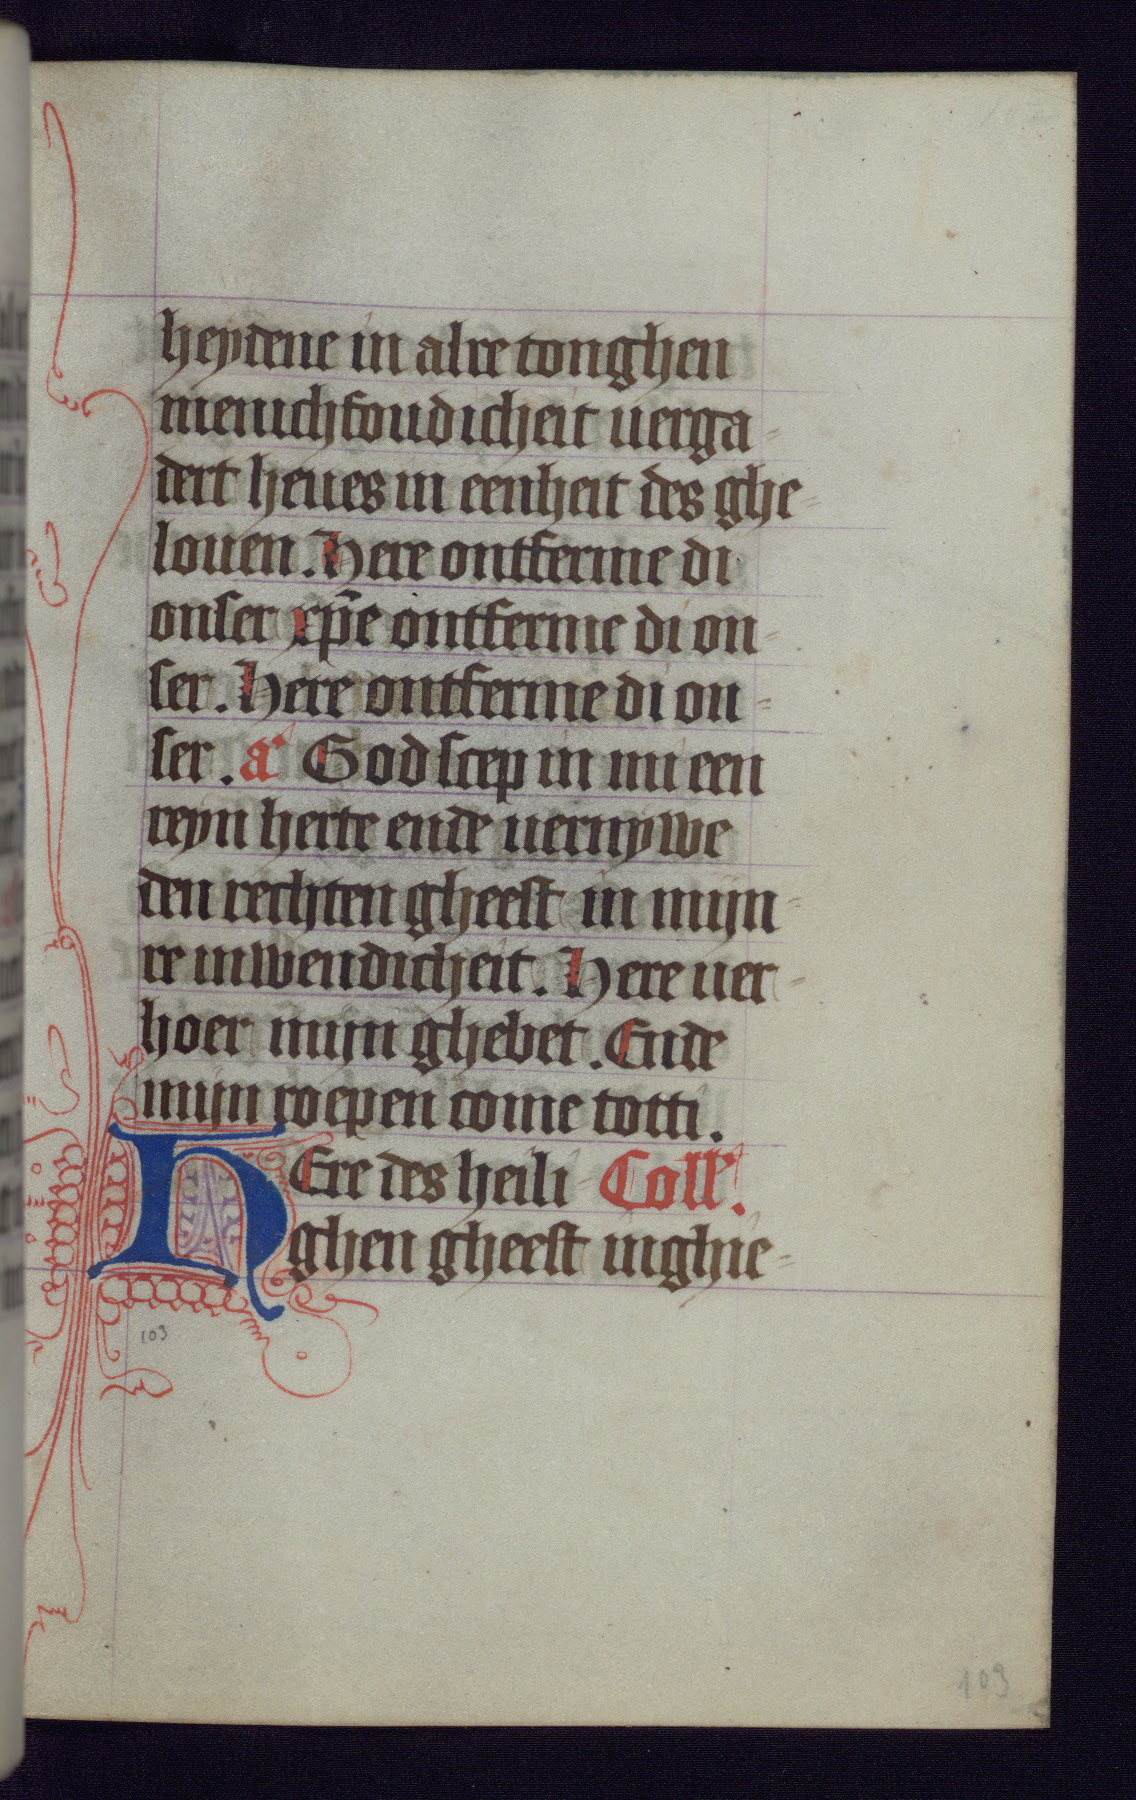 heydene in alre tonghen
menichfoudicheit uerga-
dert heues in eenheit des ghe-
louen. Here ontferme di
onser xp̄e ontferme di on-
ser. Here ontferme di on-
ser. a' God scep in mi een
reyn herte ende uernywe
den rechten gheest in mijn-
re inwendicheit. Here uer-
hoer mijn ghebet. Ende
mijn roepen come totti.
HEre des heili- Coll'.
ghen gheest inghie-
103
103